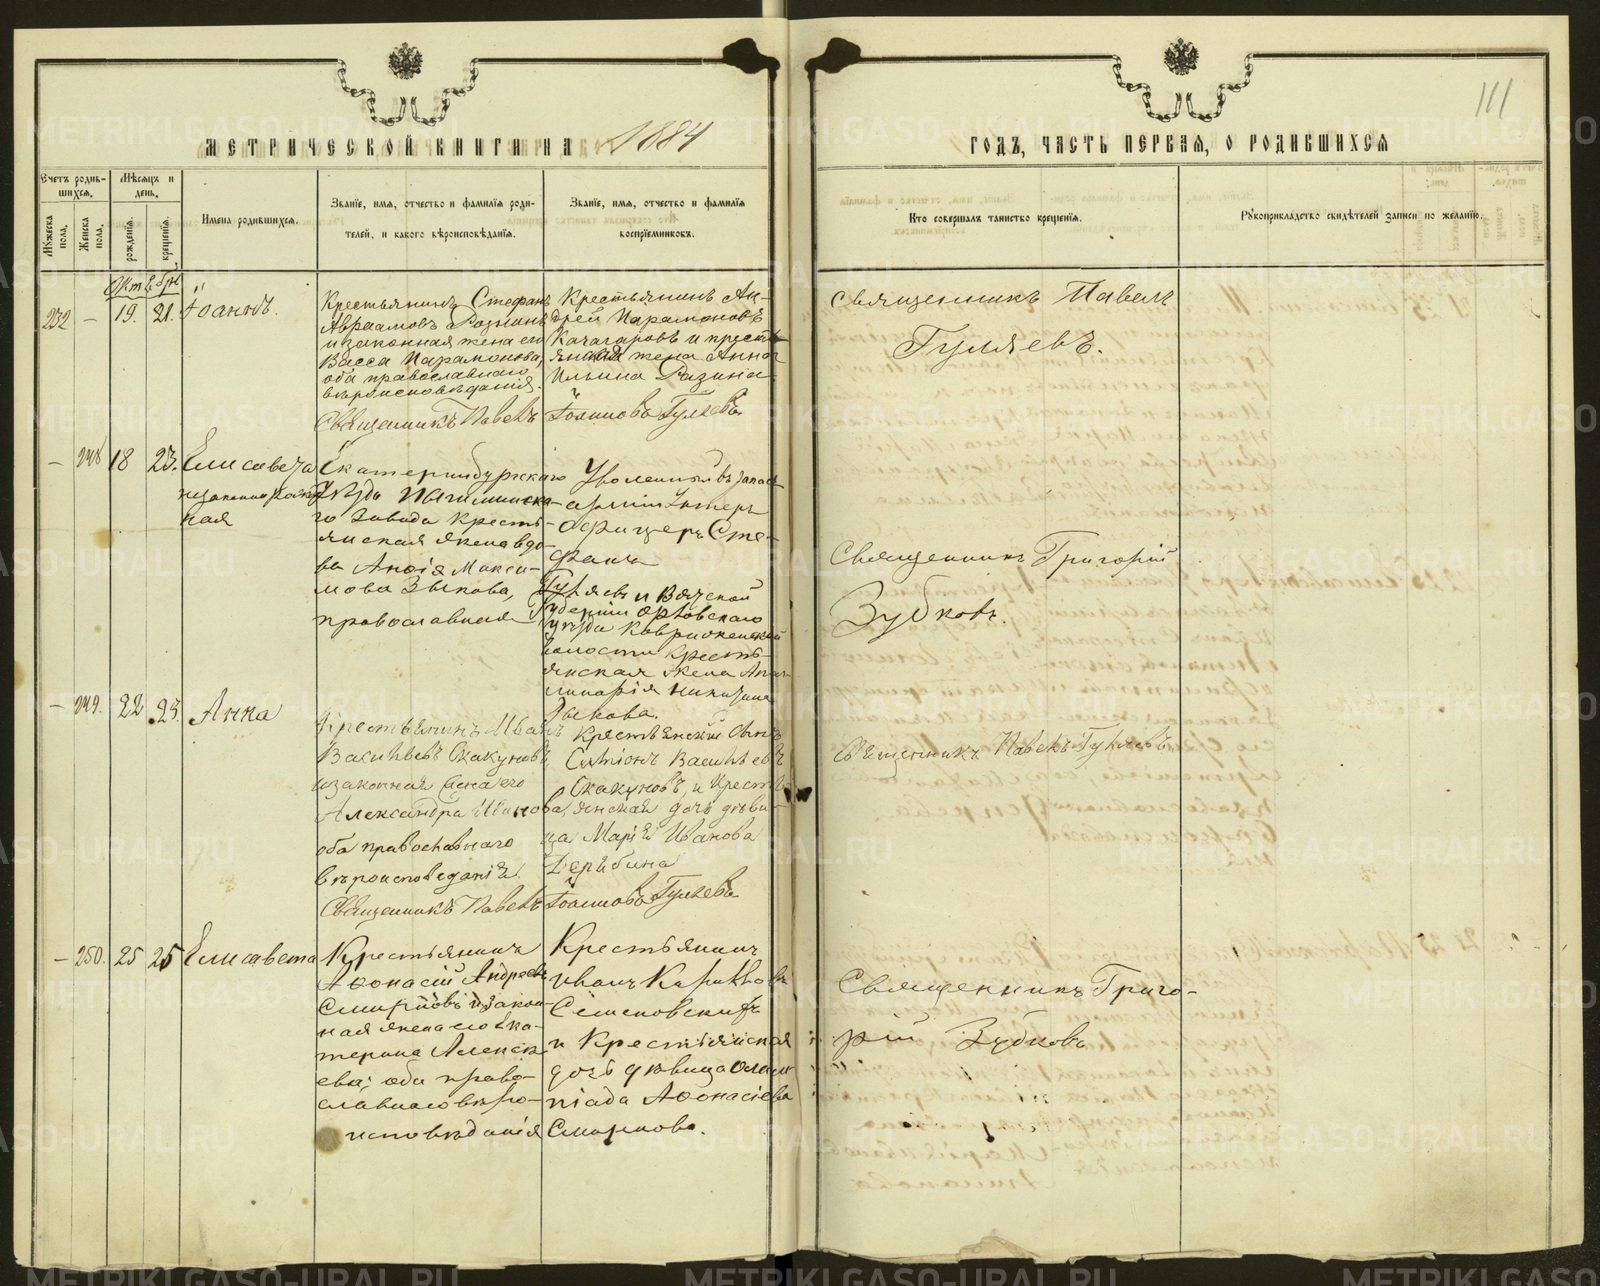 111
МЕТРИЧЕСКОЙ КНИГИ НА 1884
ГОДЪ, ЧАСТЬ ПЕРВАЯ, О РОДИВШИХСЯ
Счетъ родив-
шихся.
Мѣсяцъ и
день.
Мужеска пола.
Женска пола.
рожденія.
крещенія.
Имена родившихся.
Званіе, имя, отчество и фамилія роди-
телей, и какого вѣроисповѣданія.
Званіе, имя, отчество и фамилія
воспріемниковъ.
Кто совершалъ таинство крещенія.
Рукоприкладство свидѣтелей записи по желанію.
Октябрь
232 — 19. 21. Іоаннъ.
Крестьянинъ Стефанъ
Авраамовъ
и законная жена его
Васса Парамонова,
оба православнаго
вѣроисповѣданія.
Крестьянинъ Ан-
дрей Парамоновъ
и кресть-
жена Анна
Ильина Разина.
Священникъ Павелъ Іоанновъ Гуляевъ
Священникъ Павелъ
Гуляевъ.
— 248 18 23. Елисавета
незаконнорожден
ная
Екатеринбургскаго
уѣзда
го завода кресть-
янская жена вдо-
ва Анфія Макси-
мова Зыкова,
православная
Уволенный въ запасъ
арміи Унтеръ
офицеръ Сте-
фанъ
Гуляевъ и Вятской
Губерніи Орловскаго
уѣзда
волости кресть-
янская жена Апол
линарія Никитина
Зыкова.
Священникъ Григорій
Зубковъ.
— 249. 22 23. Анна
Крестьянинъ Иванъ
Васильевъ Скакуновъ
и законная жена его
Александра Иванова,
оба православнаго
вѣроисповѣданія.
Крестьянскій сынъ
Симіонъ Васильевъ
Скакуновъ, и Кресть
янская дочь дѣви-
ца Марія Иванова
Дерябина
Священникъ Павелъ Іоанновъ Гуляевъ
Священникъ Павелъ Гуляевъ
— 250. 25 25 Елисавета
Крестьянинъ
Афонасій Андреевъ
Смирновъ и закон-
ная жена его Ека-
терина Алексѣ-
ева; оба право-
славнаго вѣро-
исповѣданія
Крестьянинъ
Иванъ
и Крестьянская
дочь дѣвица Олим
піада Афонасіева
Смирнова.
Священникъ Григо-
рій Зубковъ
METRIKI.GASO-URAL.RU